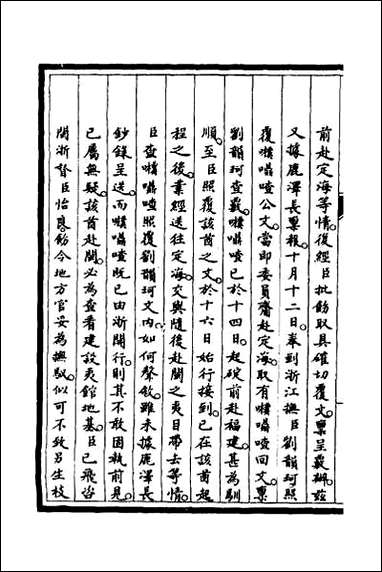 前赴定海等情復經臣批飭取具確切覆文稟呈覈辦茲
又據鹿澤長稟報十月十二日奉到浙江撫臣劉韻珂照
復㘓囁喳公文當即委員齎赴定海取有㘓囁喳回文稟
劉韻珂查覈㘓囁喳已於十四日起碇前赴福建甚為馴
順至臣照覆該酋之文於十六日始行接到已在該酋起
程之後業經送往定海交與隨後赴閩之夷目帶去等情
臣查㘓囁喳照覆劉韻珂文內如何聲敘雖未據鹿澤長
鈔錄呈送而㘓囁喳既已由浙開行則其不敢固執前見
已屬無疑該酋赴閩必為查看建設夷館地基臣已飛咨
閩浙督臣怡良飭令地方官妥為撫馭似可不致另生枝